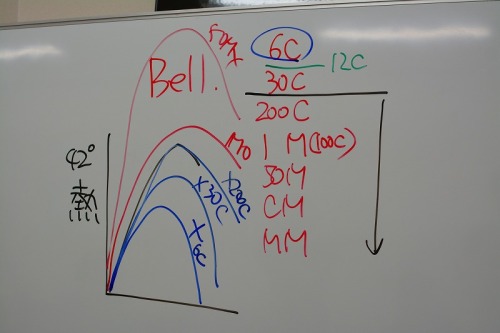 Bell.
6C
12C
30C
200C
1M(100C)
50M
CM
MM
42°
熱
+200C
+30C
+6C